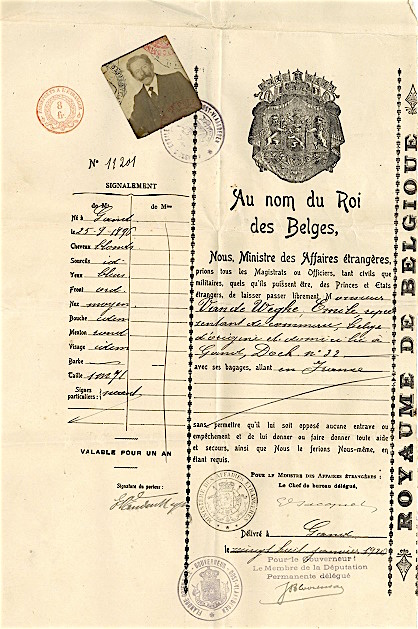 8 fr
N° 11201
SIGNALEMENT
de Mr
de Mme
Né à Gand
le 25-9-1896
Cheveux blonds
Sourcils id
Yeux bleus
Front ord
Nez moyen
Bouche idem
Menton rond
Visage idem
Barbe
Taille 1m71
Signes particuliers: néant
VALABLE POUR UN AN
Signature du porteur:
Au nom du Roi
des Belges,
Nous, Ministre des Affaires étrangères,
prions tous les Magistrats ou Officiers, tant civils que
militaires, quels qu'ils puissent être, des Princes et États
étrangers, de laisser passer librement, Monsieur
Vande Weghe Emile repré
sentant de commerce, belge
d'origine et domicilié à
Gand, Dock n° 22
avec ses bagages, allant en France
sans permettre qu'il lui soit opposé aucune entrave ou
empêchement et de lui donner ou faire donner toute aide
et secours, ainsi que Nous le ferions Nous-même, en
étant requis.
POUR LE MINISTRE DES AFFAIRES ÉTRANGÈRES:
Le Chef de bureau délégué,
Délivré à Gand
le vingt huit janvier 1920
Pour le Gouverneur:
Le Membre de la Députation
Permanente délégué
ROYAUME DE BELGIQUE